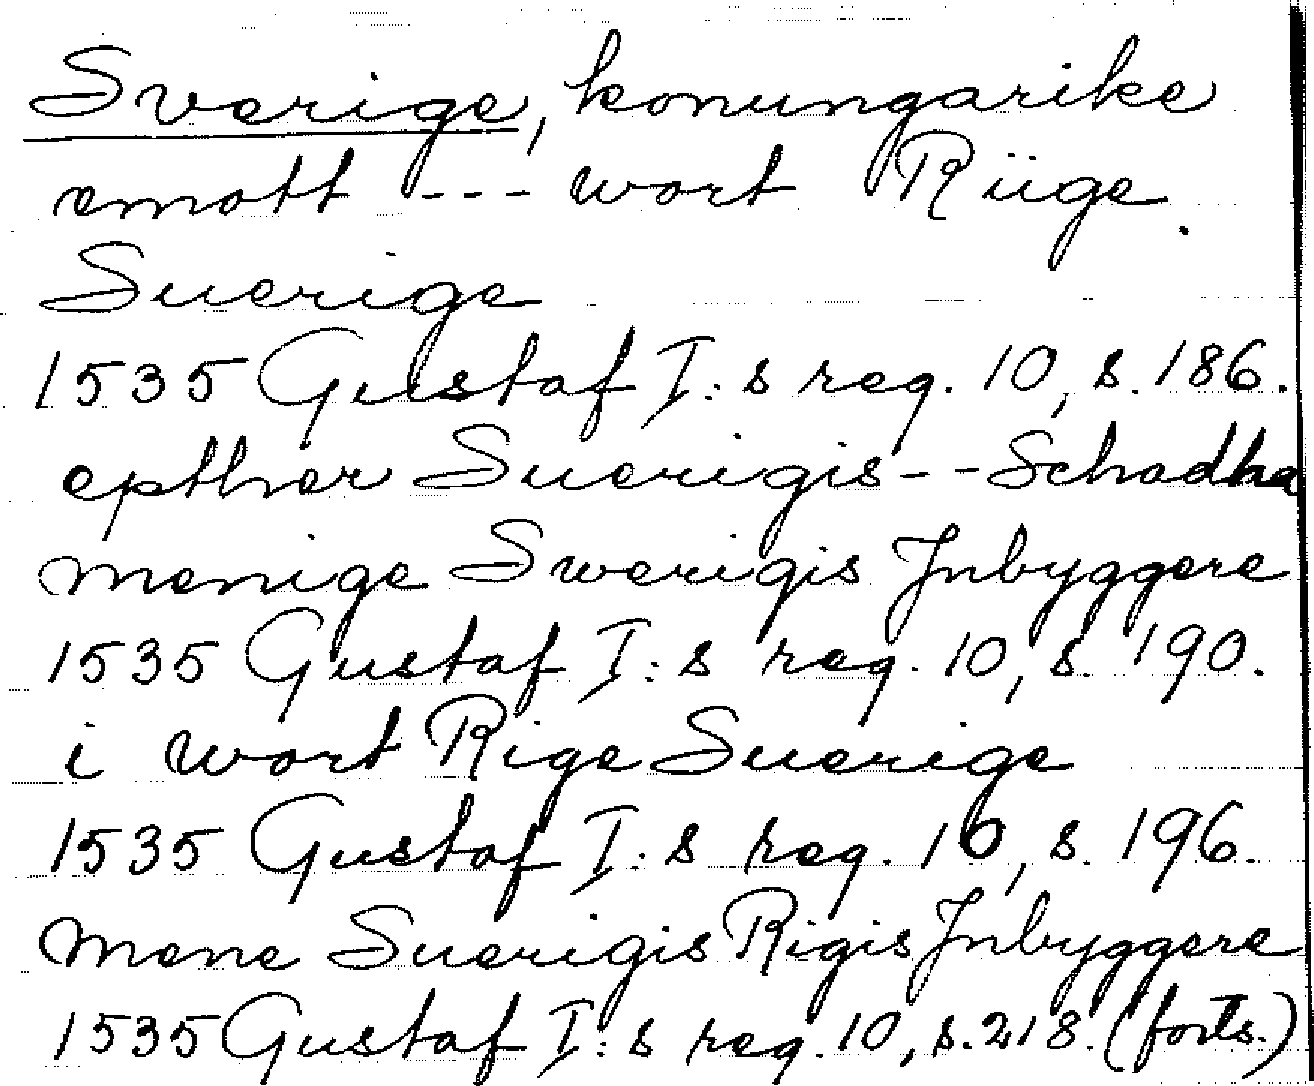 Sverige, konungarike
emott --- wort Riige
Suerige
1535 Gustaf I:s reg. 10, s. 186.
epther Suerigis -- Schadha
menige Swerigis Jnbyggere
1535 Gustaf I:s reg. 10, s. 190.
i wort Rige Suerige
1535 Gustaf I:s reg. 10, s. 196.
mene Suerigis Rigis Jnbyggere
1535 Gustaf I:s reg. 10, s. 218. (forts.)